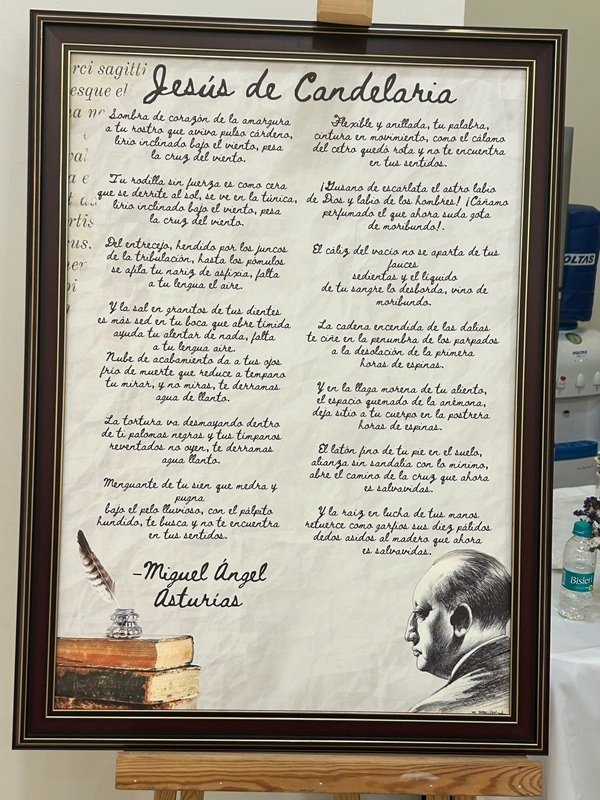 rci sagitti
esque el
Jesús de Candelaria
Sombra de corazón de la amargura
a tu rostro que aviva pulso cárdeno,
lirio inclinado bajo el viento, pesa
la cruz del viento.
Tu rodilla sin fuerza es como cera
que se derrite al sol, se ve en la túnica,
lirio inclinado bajo el viento, pesa
la cruz del viento.
Del entrecejo, hendido por los juncos
de la tribulación, hasta los pómulos
se afila tu nariz de asfixia, falta
a tu lengua el aire.
Y la sal en granitos de tus dientes
es más sed en tu boca que abre timida
ayuda tu alentar de nada, falta
a tu lengua aire.
Nube de acabamiento da a tus ojos
frio de muerte que reduce a tempano
tu mirar, y no miras, te derramas
agua de llanto.
La tortura va desmayando dentro
de ti palomas negras y tus tímpanos
reventados no oyen, te derramas
agua llanto.
Menguante de tu sien que medra y
pugna
bajo el pelo lluvioso, con el pálpito
hundido, te busca y no te encuentra
en tus sentidos.
Flexible y anillada, tu palabra,
cintura en movimiento, como el cálamo
del cetro quedó rota y no te encuentra
en tus sentidos.
¡Gusano de escarlata el astro labio
de Dios y labio de los hombres! ¡Cáñamo
perfumado el que ahora suda gota
de moribundo!.
El cáliz del vacio no se aparta de tus
fauces
sedientas y el liquido
de tu sangre lo desborda, vino de
moribundo.
La cadena encendida de las dalias
te ciñe en la penumbra de los parpados
a la desolación de la primera
horas de espinas.
Y en la llaga morena de tu aliento,
el espacio quemado de la anémona,
deja sitio a tu cuerpo en la postrera
horas de espinas.
El latón fino de tu pie en el suelo,
alianza sin sandalia con lo minimo,
abre el camino de la cruz que ahora
es salvavidas.
Y la raiz en lucha de tus manos
retuerce como garfios sus diez pálidos
dedos asidos al madero que ahora
es salvavidas.
-Miguel Ángel
Asturias
OLTAS
VOLTAS
Bisleri